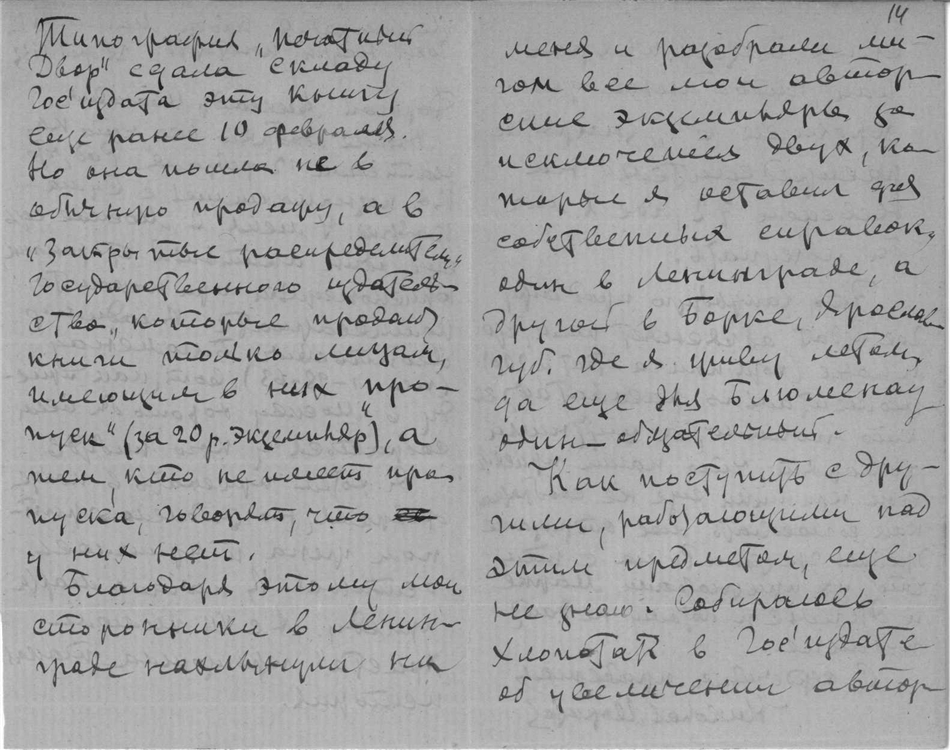 Типография „Печатный
Двор" сдала складу
Гос'издата эту книгу
еще ранее 10 февраля.
Но она пошла не в
обычную продажу, а в
„Закрытые распределители
Государственного издатель-
ства", которые продают
книги только лицам,
имеющим в них „про-
пуск" (за 20 р. экземпляр), а
тем, кто не имеет про-
пуска, говорят, что
у них нет.
Благодаря этому мои
сторонники в Ленин-
граде нахлынули на
14
меня и разобрали ми-
гом все мои автор-
ские экземпляры за
исключением двух, ко-
торые я оставил для
собственных справок,
один в Ленинграде, а
другой в Борке, Ярослав.
губ. где я живу летом,
да еще для Блюменау
один – обязательный.
Как поступить с дру-
гими, работающими над
этим предметом, еще
не знаю. Собираюсь
хлопотать в Гос'издате
об увеличении автор